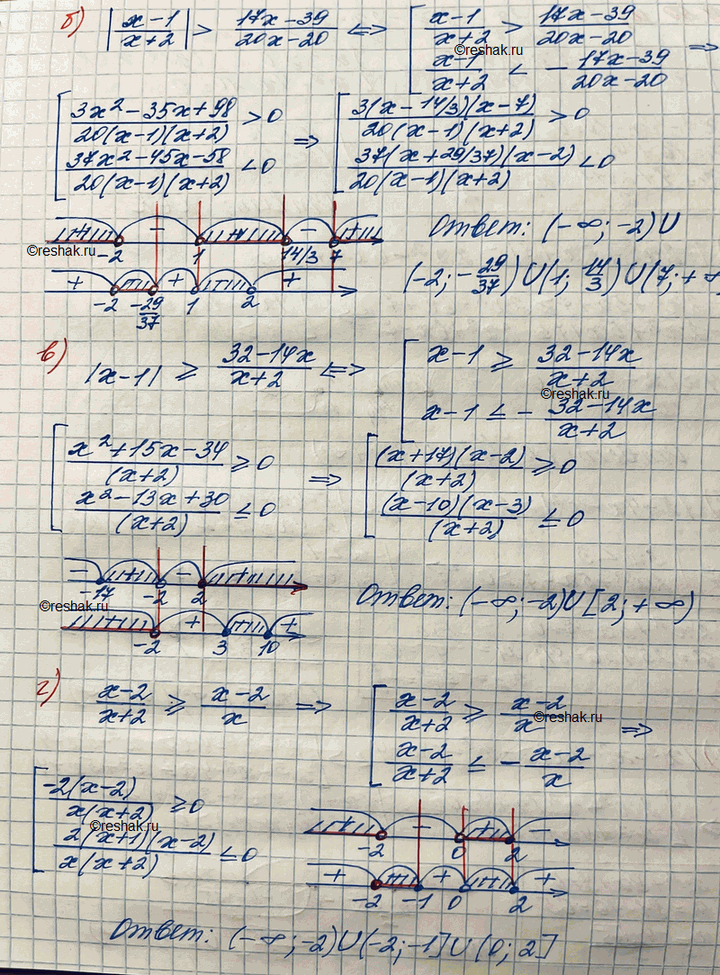 б) |x-1/x+2| > 17x-39/20x-20 <=> [ x-1/x+2 > 17x-39/20x-20
x-1/x+2 < - 17x-39/20x-20 =>
©reshak.ru
[ 3x²-35x+98/20(x-1)(x+2) > 0
37x²-45x-58/20(x-1)(x+2) < 0
=> [ 3(x-14/3)(x-7)/20(x-1)(x+2) > 0
37(x+29/37)(x-2)/20(x-1)(x+2) < 0
+ - + - +
-2 1 14/3 7
©reshak.ru
+ - + - +
-2 -29/37 1 2
Ответ: (-∞; -2) ∪
(-2; -29/37) ∪ (1; 14/3) ∪ (7; +∞
в) |x-1| ≥ 32-14x/x+2 <=> [ x-1 ≥ 32-14x/x+2
©reshak.ru
x-1 ≤ - 32-14x/x+2
[ x²+15x-34/(x+2) ≥ 0
x²-13x+30/(x+2) ≤ 0
=> [ (x+17)(x-2)/(x+2) ≥ 0
(x-10)(x-3)/(x+2) ≤ 0
- + - +
-17 -2 2
©reshak.ru
- + - +
-2 3 10
Ответ: (-∞; -2) ∪ [2; +∞)
г) x-2/x+2 ≥ x-2/x => [ x-2/x+2 ≥ x-2/x
©reshak.ru
x-2/x+2 ≤ - x-2/x =>
[ -2(x-2)/x(x+2) ≥ 0
©reshak.ru
2(x+1)(x-2)/x(x+2) ≤ 0
+ - + -
-2 0 2
+ - + - +
-2 -1 0 2
Ответ: (-∞; -2) ∪ (-2; -1] ∪ (0; 2]